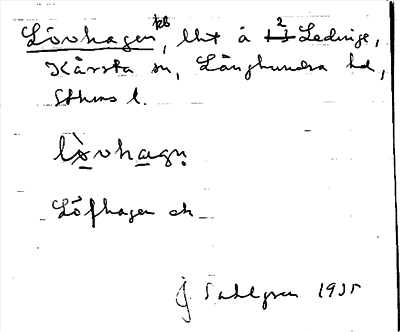 Lövhagen pb, lht å 2 Ledinge,
Kårsta sn, Långhundra hd,
Sthms l.
lövhagn
Löfhagen ek
J Sahlgren 1935